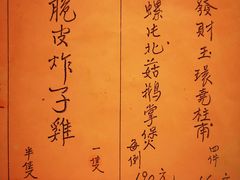 發財玉環柱甫 四件
螺片北菇鵝掌煲 每例
脆皮炸子雞 一隻
半隻